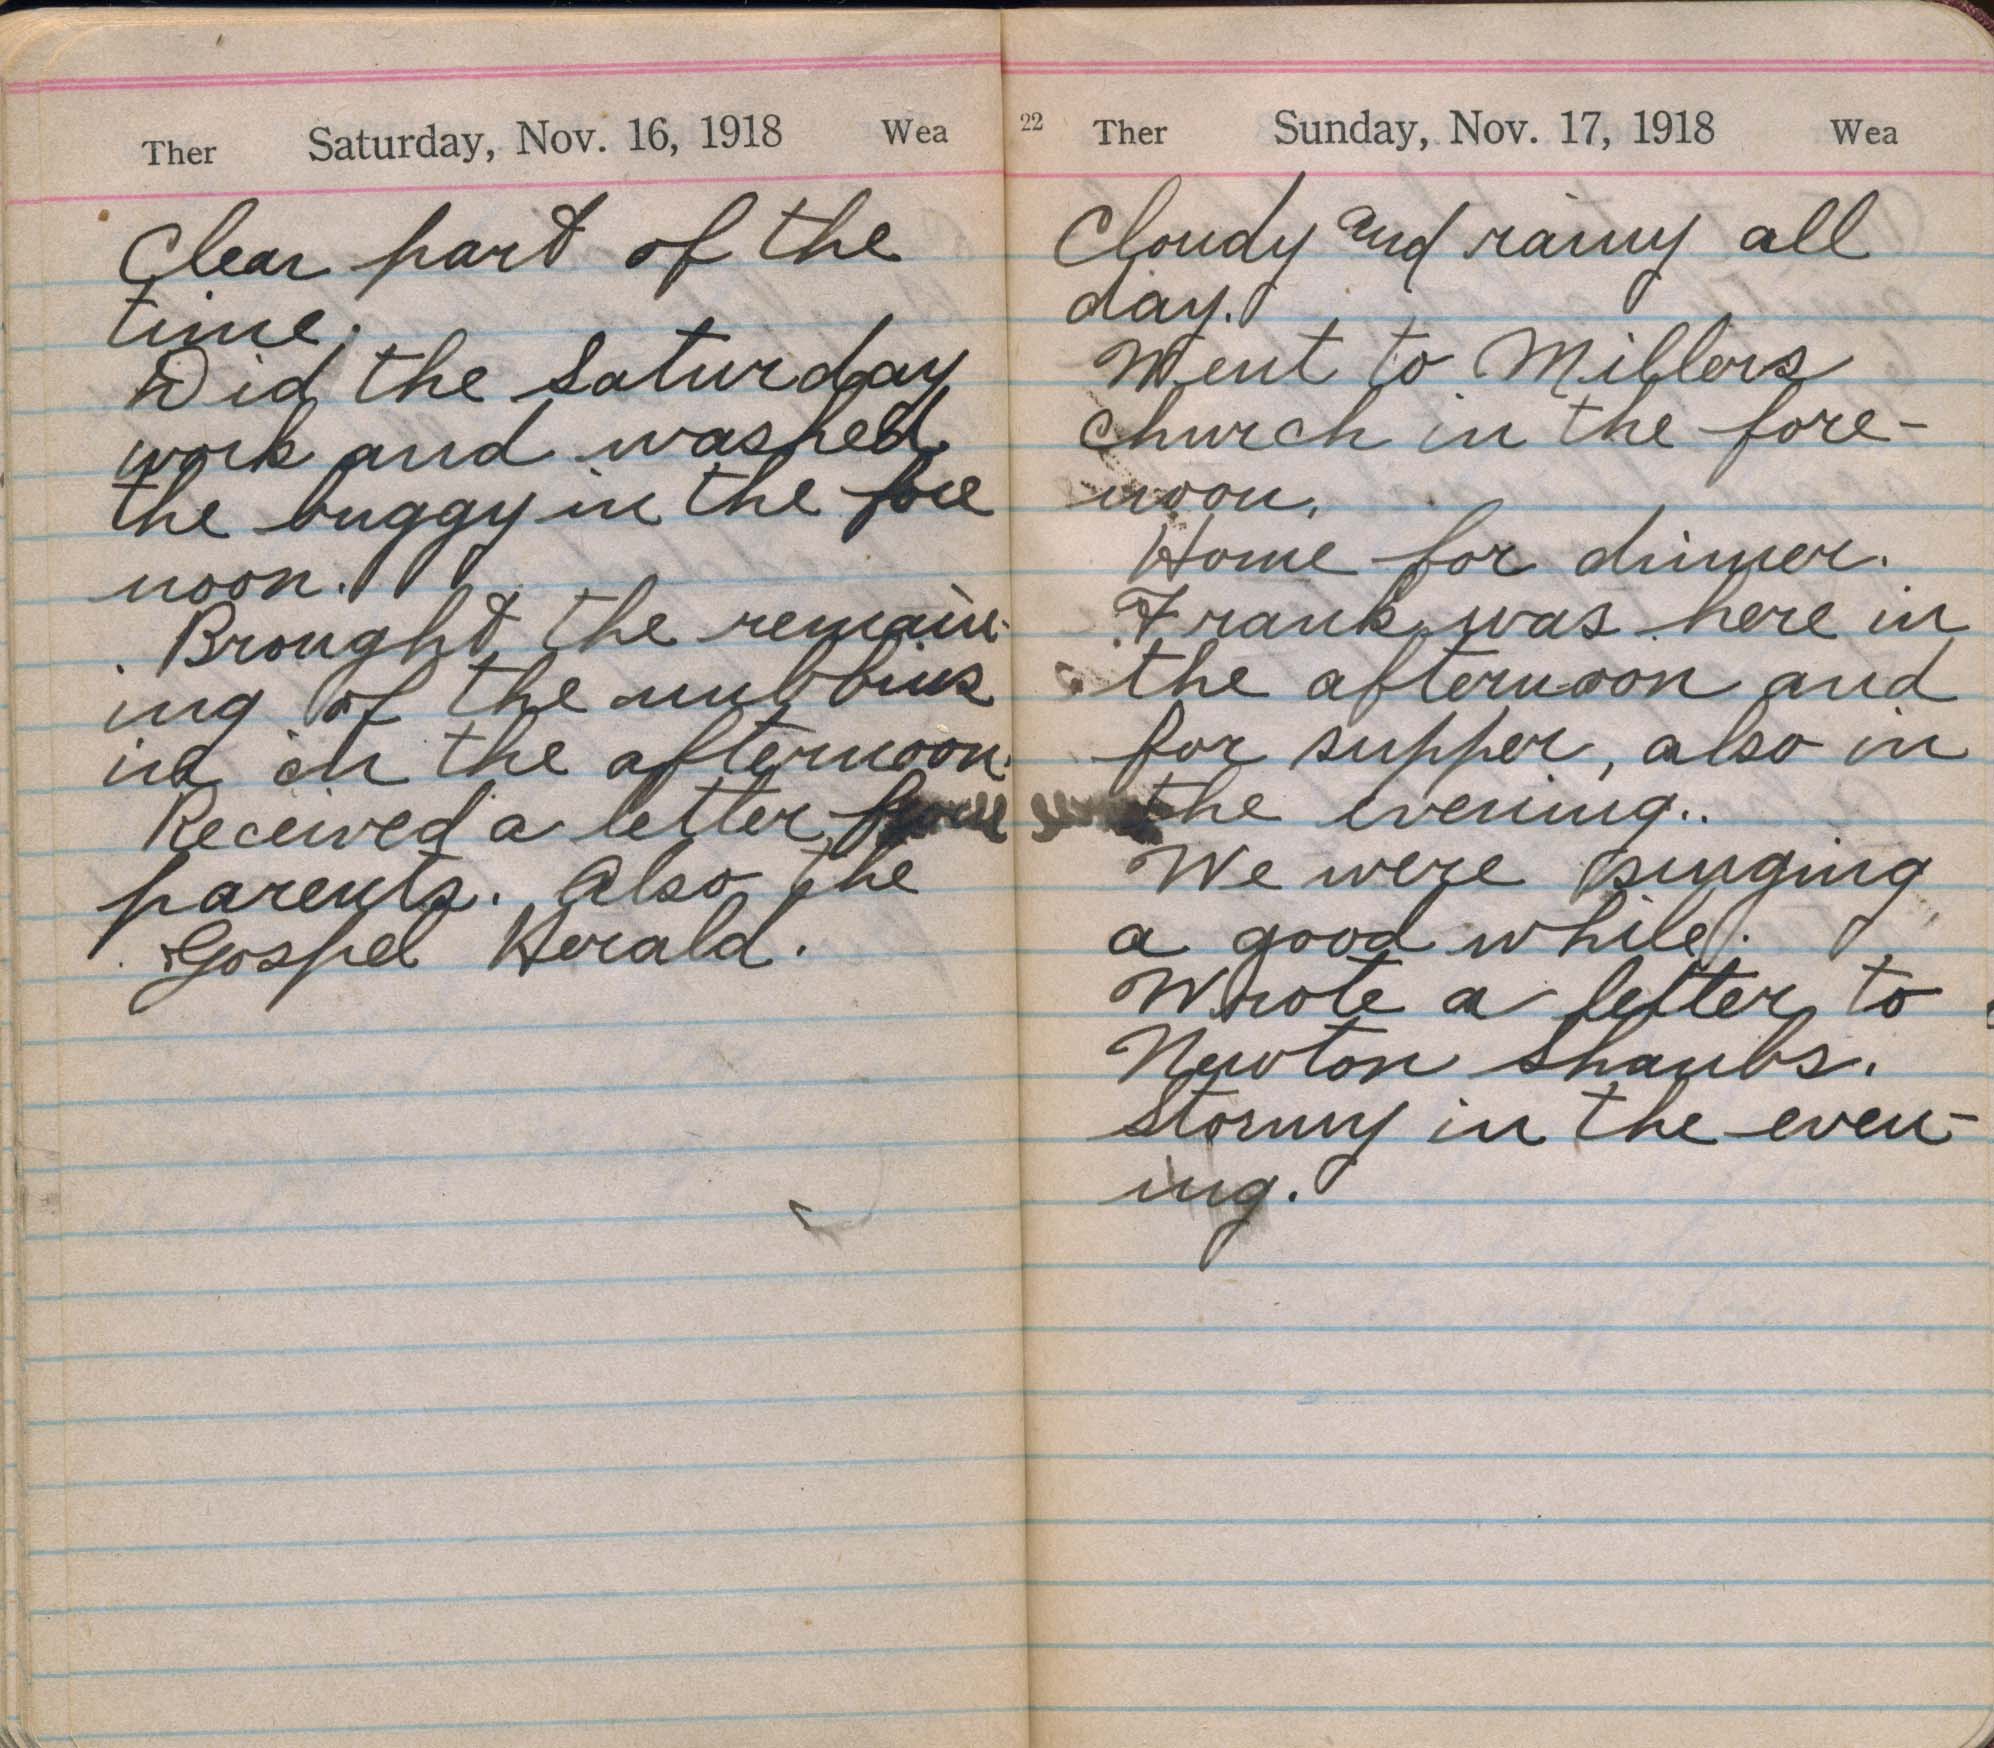 Ther Saturday, Nov. 16, 1918 Wea
Clear part of the
time.
Did the Saturday
work and washed
the buggy in the fore
noon.
Brought the remain-
ing of the nubbins
in in the afternoon.
Received a letter from
parents. Also the
Gospel Herald.
22 Ther Sunday, Nov. 17, 1918 Wea
Cloudy and rainy all
day.
Went to Millers
church in the fore-
noon.
Home for dinner.
Frank was here in
the afternoon and
for supper, also in
the evening..
We were singing
a good while.
Wrote a letter to
Newton Shaubs.
Stormy in the even-
ing.